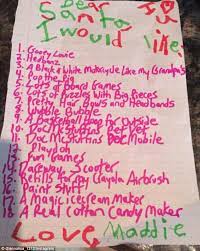 Dear
Santa I ♥ U
I would like:
1. Gooey Louie
2. Hedbanz
3. A Black & white Motorcycle like my Grandpa's
4. Pop the Pig
5. Lots of Board Games
6. Lots of Puzzles with Big Pieces
7. Pretty Hair Bows and Headbands
8. Wubble Bubble
9. A Basketball Hoop for outside
10. Doc McStuffins Pet Vet
11. Doc McStuffins Doc Mobile
12. Playdoh
13. Fun Games
14. Scooter
15. Refills for my Crayola Airbrush
16. Paint Stuff
17. A Magic ice cream Maker
18. A Real Cotton Candy Maker
Love, Maddie